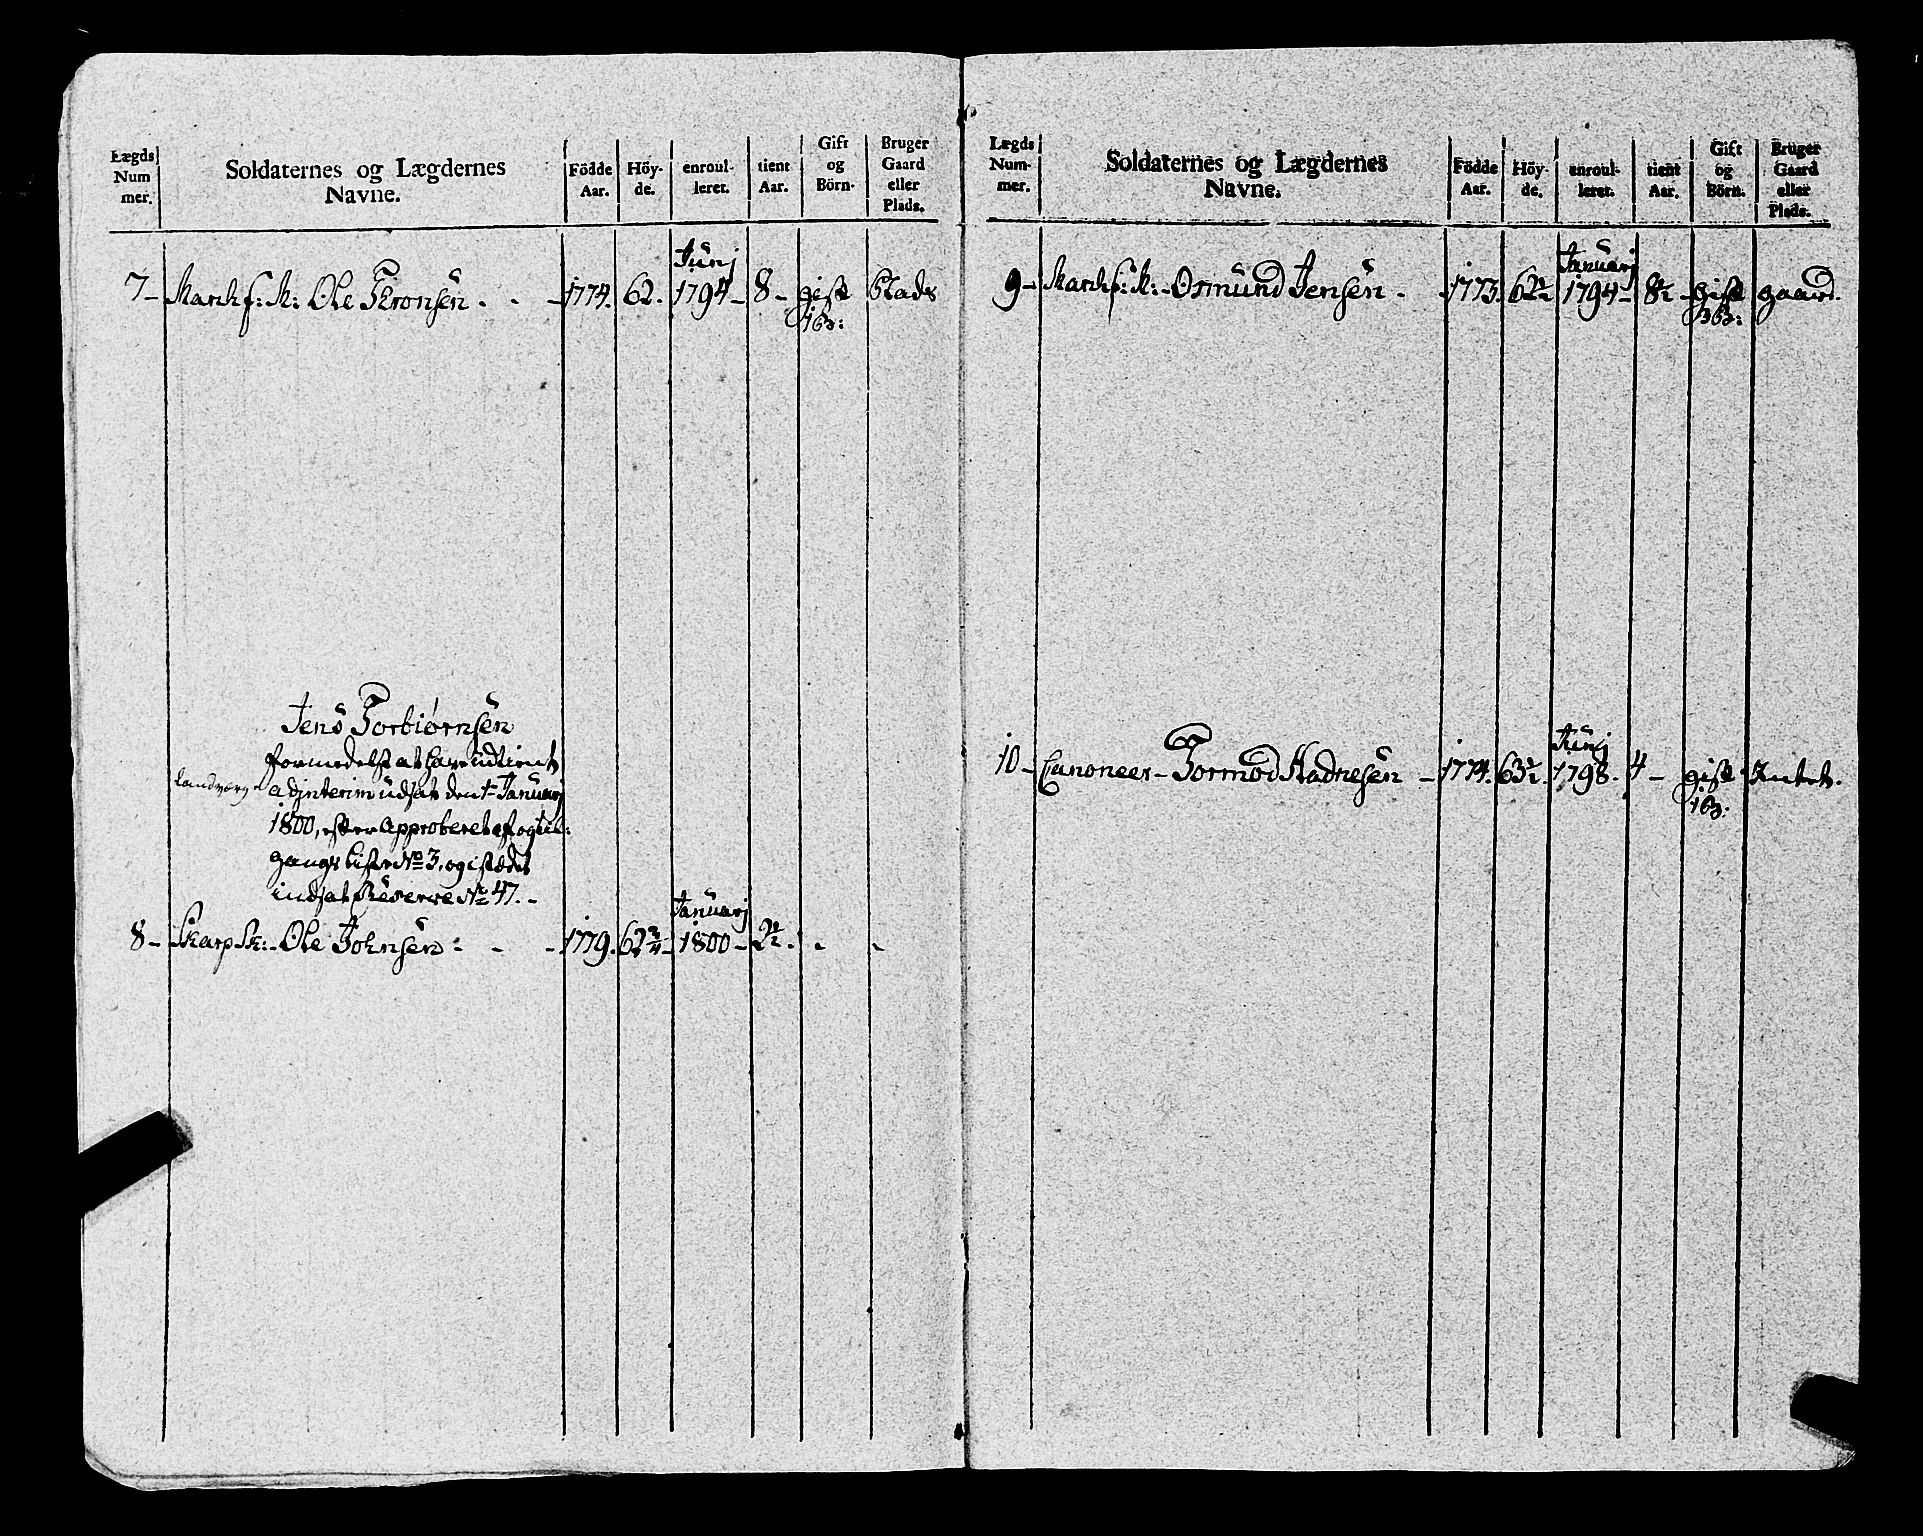 Lægds
Num
mer.
Soldaternes og Lægdernes
Navne.
Födde
Aar.
Höy-
de.
enroul-
leret.
tient
Aar.
Gift
og
Börn.
Bruger
Gaard
eller
Plads.
Junj
7- Mankf: K: Ole Thronsen. - -1774. 62. 1794- 8- gift Plads
1 b:
Jens Torbiørnsen
formedelst at have udtient
Landværn
adjnterim udsat den 1te Januarj
1800, efter Approberet af og til:
gangs Liste No 3, og i stædet
indsat Reserve No 47.-
Januarj
8- Skarp Sk:- Ole Johnsen - - -1779. 62 3/4- 1800- 2 1/2. - -
Lægds
Num-
mer.
Soldaternes og Lægdernes
Navne.
Födde
Aar.
Höy-
de.
enroul-
leret.
tient
Aar.
Gift
og
Börn.
Bruger
Gaard
eller
Plads.
Januarj
9- Mankf: K:- Osmund Jensen - 1773. 62 1/2 1794- 8 1/2- gift gaard.
3 b:
Junj
10- Canoneer- Tormod Hadnesen - 1774. 63 1/2. 1798. 4- gift. Intet.
1 b: